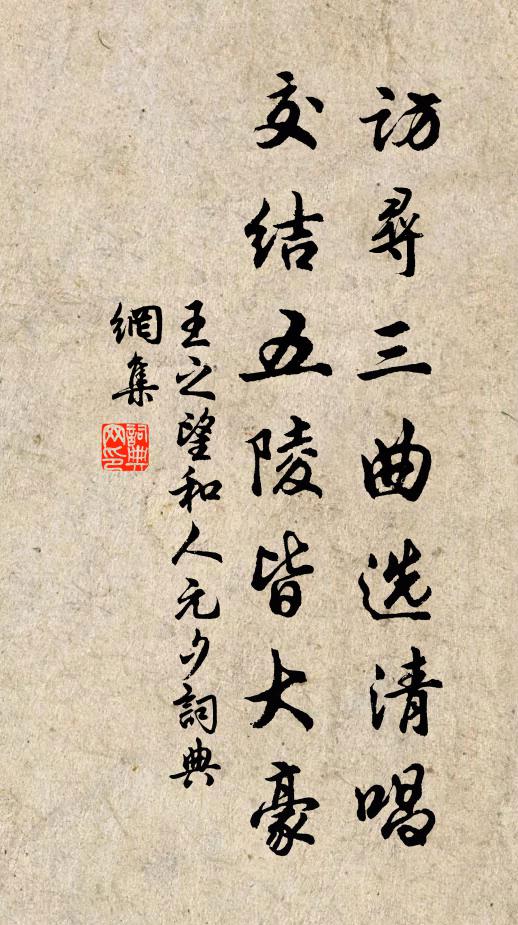 访寻三曲选清唱
交结五陵皆大豪
王之望和人元夕詞典
網集
詞典网印